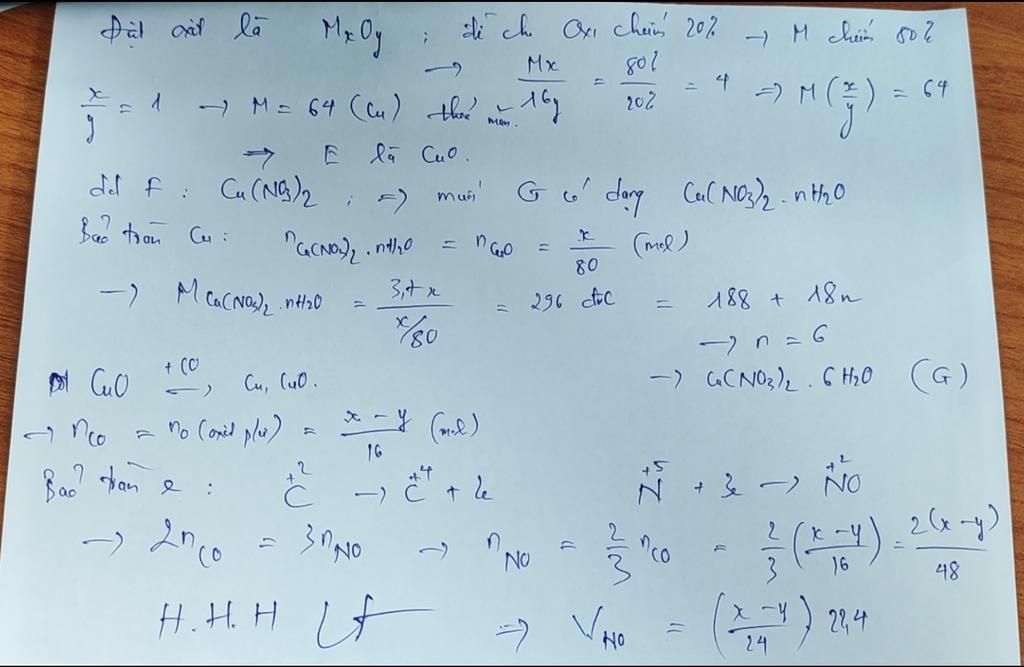 Đặt oxit là MxOy ; đề cho Oxi chiếm 20% → M chiếm 80%
→ Mx/16y = 80%/20% = 4 ⇒ M(x/y) = 64
x/y = 1 → M = 64 (Cu) thoả mãn.
⇒ E là CuO.
dd F : Cu(NO3)2 ; ⇒ muối G có dạng Cu(NO3)2 . nH2O
Bảo toàn Cu : nCu(NO3)2 . nH2O = nCuO = x/80 (mol)
→ MCu(NO3)2 . nH2O = 3,7x / x/80 = 296 đvC = 188 + 18n
→ n = 6
CuO +CO → Cu, CuO. → Cu(NO3)2 . 6H2O (G)
→ nCO = nO (oxit p/ư) = x - y/16 (mol)
Bảo toàn e : +2 C → +4 C + 2e +5 N + 3e → +2 NO
→ 2nCO = 3nNO → nNO = 2/3 nCO = 2/3 (x - y/16) = 2(x - y)/48
H.H.H ⇒ VNO = (x - y/24) 22,4